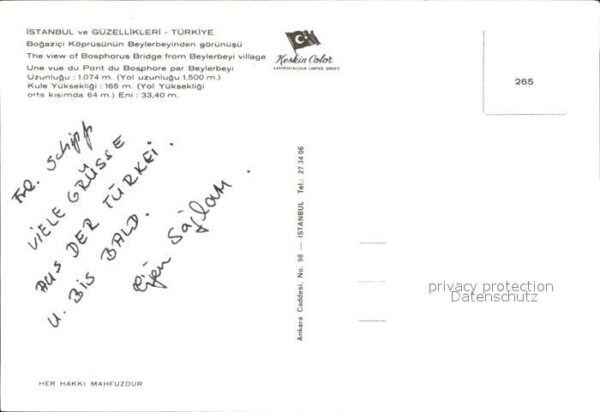 İSTANBUL ve GÜZELLİKLERİ - TÜRKİYE
Boğaziçi Köprüsünün Beylerbeyinden görünüşü
The view of Bosphorus Bridge from Beylerbeyi village
Une vue du Pont du Bosphore par Beylerbeyi
Uzunluğu : 1.074 m. (Yol uzunluğu 1.500 m.)
Kule Yüksekliği : 165 m. (Yol Yüksekliği
orta kısımda 64 m.) Eni : 33,40 m.
Keskin Color
KARTPOSTALCILIK LIMITED ŞİRKETİ
265
Frl. Schipp
VIELE GRÜSSE
AUS DER TÜRKEI.
U. BIS BALD.
Sağlam.
Ankara Caddesi, No. 98 — İSTANBUL Tel.: 27 34 06
privacy protection
Datenschutz
HER HAKKI MAHFUZDUR